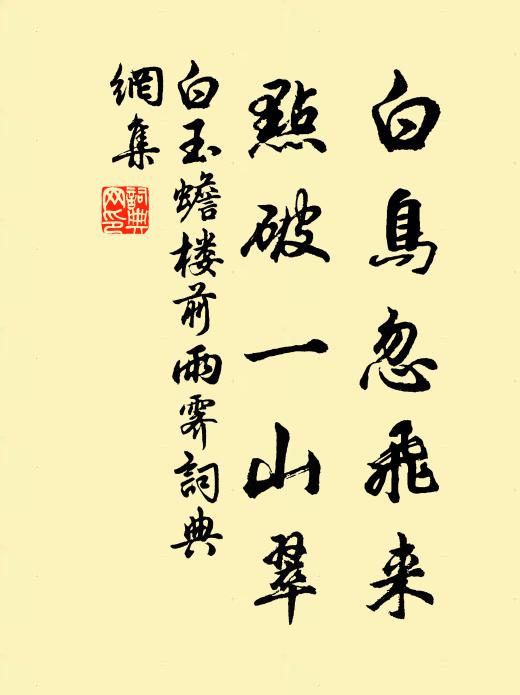 白鳥忽飛来
點破一山翠
白玉蟾楼前雨霽詞典
網集
詞典
网印